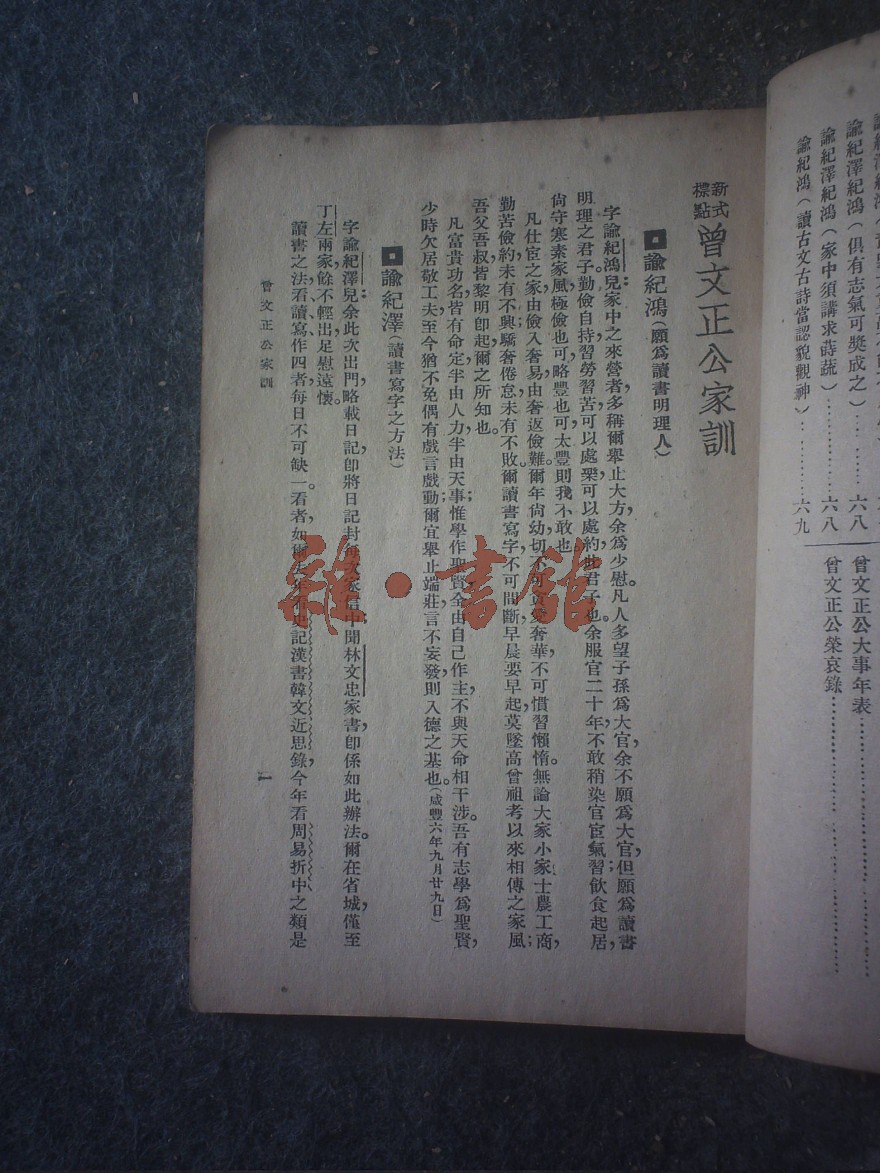 諭紀澤紀鴻（俱有志氣可奬成之）………六八
諭紀澤紀鴻（家中須講求蒔蔬）…………六八
諭紀鴻（讀古文古詩當認貌觀神）………六九
曾文正公大事年表……………………
曾文正公榮哀錄……………………
新式標點 曾文正公家訓
諭紀鴻（願爲讀書明理人）
字諭紀鴻兒：家中之來營者，多稱爾舉止大方，余爲少慰。凡人多望子孫爲大官，余不願爲大官，但願爲讀書
明理之君子。勤儉自持，習勞習苦，可以處樂，可以處約，此君子也。余服官二十年，不敢稍染官宦氣習，飲食起居，
尙守寒素家風，極儉也可，略豐也可，太豐則我不敢也。
凡仕宦之家，由儉入奢易，由奢返儉難。爾年尙幼，切不可貪愛奢華，不可慣習懶惰。無論大家小家，士農工商，
勤苦儉約，未有不興；驕奢倦怠，未有不敗。爾讀書寫字，不可間斷，早晨要早起，莫墜高曾祖考以來相傳之家風；
吾父吾叔，皆黎明卽起，爾之所知也。
凡富貴功名，皆有命定，半由人力，半由天事；惟學作聖賢，全由自己作主，不與天命相干涉。吾有志學爲聖賢，
少時欠居敬工夫，至今猶不免偶有戲言戲動，爾宜舉止端莊，言不妄發，則入德之基也。（咸豐六年九月廿九日）
諭紀澤（讀書寫字之方法）
字諭紀澤兒：余此次出門，略載日記，卽將日記封每次家信中，聞林文忠家書，卽係如此辦法。爾在省城，僅至
丁左兩家，餘不輕出，足慰遠懷。
讀書之法，看、讀、寫、作，四者每日不可缺一。看者，如爾去年看史記漢書韓文近思錄，今年看周易折中之類是
曾文正公家訓
一
雜·書館